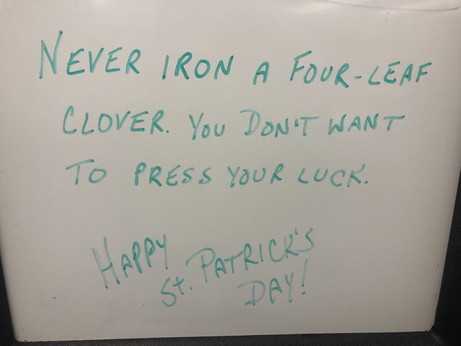 NEVER IRON A FOUR-LEAF
CLOVER. YOU DON'T WANT
TO PRESS YOUR LUCK.
HAPPY
St. PATRICK'S
DAY!